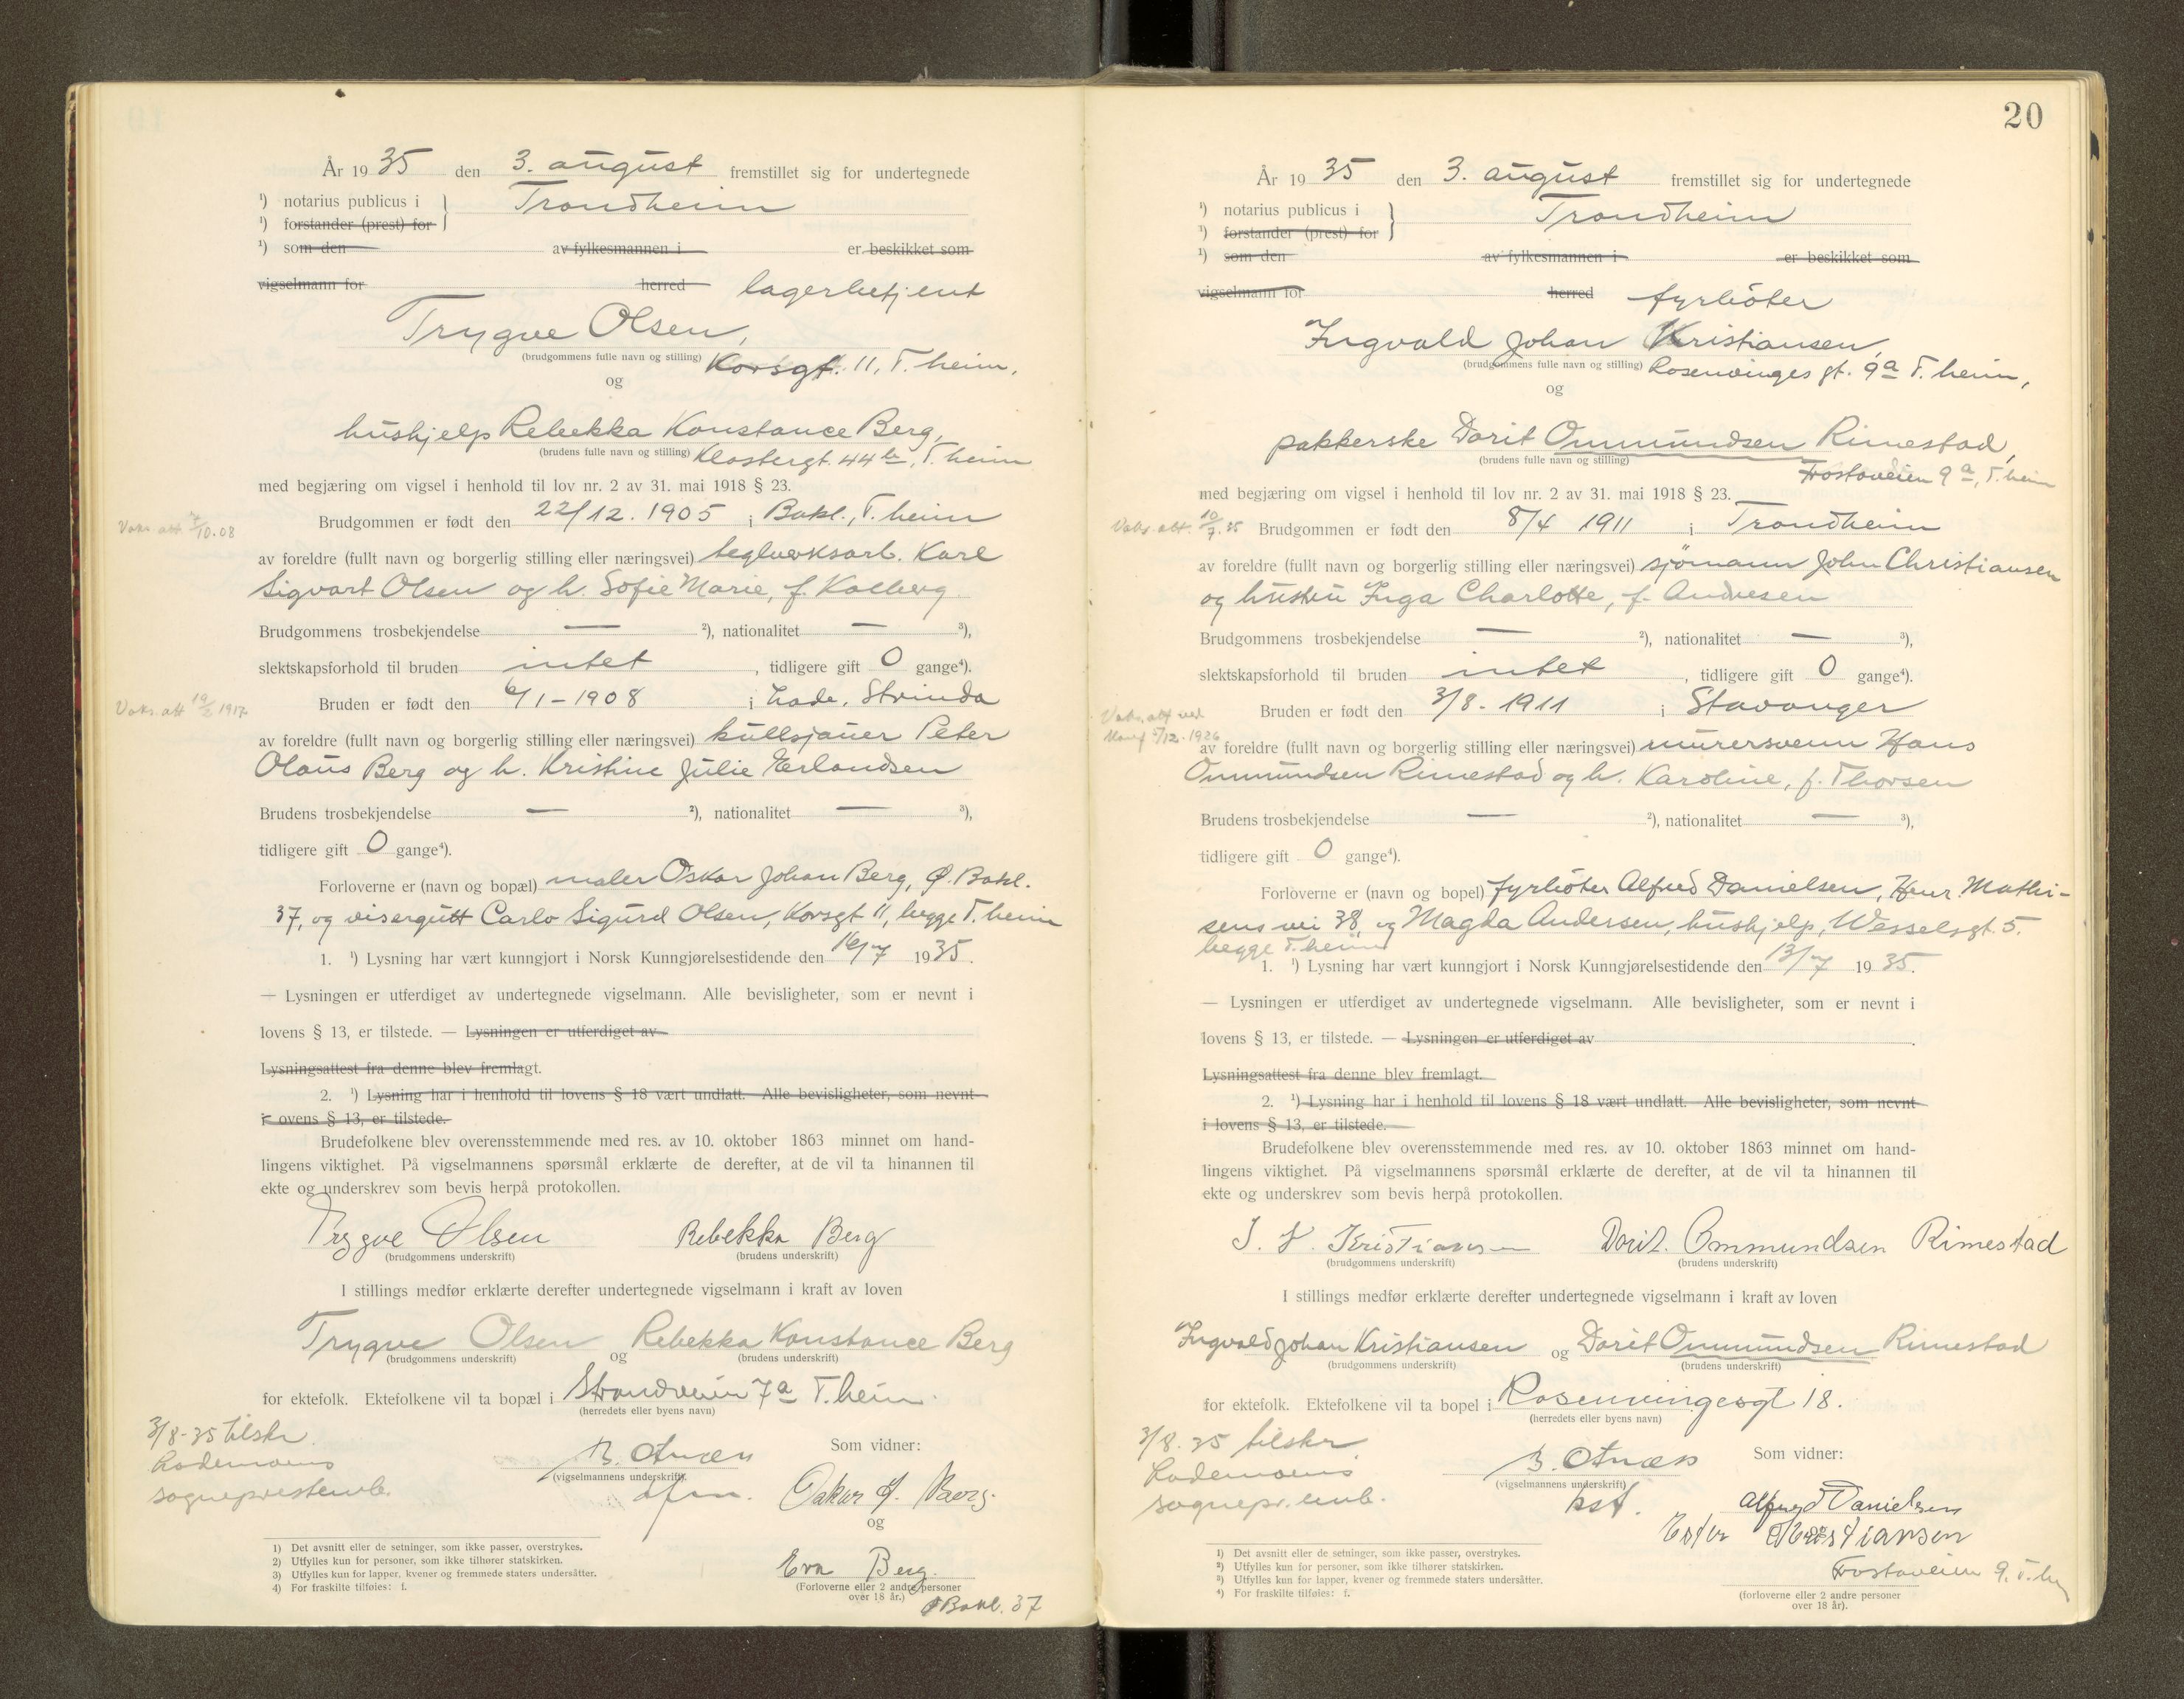 År 1935 den 3. august fremstillet sig for undertegnede
¹) notarius publicus i } Trondheim
¹) forstander (prest) for
¹) som den av fylkesmannen i er beskikket som
vigselmann for herred lagerbetjent
Trygve Olsen,
(brudgommens fulle navn og stilling) Korsgt. 11, T.heim,
og
hushjelp Rebekka Konstance Berg,
(brudens fulle navn og stilling) Klostergt. 44 b, T.heim
med begjæring om vigsel i henhold til lov nr. 2 av 31. mai 1918 § 23.
Vaks. att. 7/10.08
Brudgommen er født den 22/12. 1905 i Bakl., T.heim
av foreldre (fullt navn og borgerlig stilling eller næringsvei) teglverksarb. Karl
Sigvart Olsen og h. Sofie Marie, f. Kalberg
Brudgommens trosbekjendelse — ²), nationalitet — ³),
slektskapsforhold til bruden intet, tidligere gift 0 gange⁴).
Vaks. att 1917.
Bruden er født den 6/1 - 1908 i Lade, Strinda
av foreldre (fullt navn og borgerlig stilling eller næringsvei) kullsjauer Peter
Olaus Berg og h. Kristine Julie Erlandsen
Brudens trosbekjendelse — ²), nationalitet — ³),
tidligere gift 0 gange⁴).
Forloverne er (navn og bopæl) maler Oskar Johan Berg, Ø. Bakl.
37, og visergutt Carlo Sigurd Olsen, Korsgt 11, begge T.heim
1. ¹) Lysning har vært kunngjort i Norsk Kunngjørelsestidende den 16/7 1935.
— Lysningen er utferdiget av undertegnede vigselmann. Alle bevisligheter, som er nevnt i
lovens § 13, er tilstede. — Lysningen er utferdiget av
Lysningsattest fra denne blev fremlagt.
2. ¹) Lysning har i henhold til lovens § 18 vært undlatt. Alle bevisligheter, som nevnt
i ovens § 13, er tilstede.
Brudefolkene blev overensstemmende med res. av 10. oktober 1863 minnet om hand-
lingens viktighet. På vigselmannens spørsmål erklærte de derefter, at de vil ta hinannen til
ekte og underskrev som bevis herpå protokollen.
Trygve Olsen Rebekka Berg
(brudgommens underskrift) (brudens underskrift)
I stillings medfør erklærte derefter undertegnede vigselmann i kraft av loven
Trygve Olsen og Rebekka Konstance Berg
(brudgommens underskrift) (brudens underskrift)
for ektefolk. Ektefolkene vil ta bopæl i Strandveien 7a T.heim.
(herredets eller byens navn)
3/8-35 tilskr.
Lademoens
sogneprestemb.
B. Otnæs
(vigselmannens underskrift).
Som vidner:
Oskar J. Berg.
og
Eva Berg.
(Forloverne eller 2 andre personer
over 18 år.) Ø Bakl. 37
1) Det avsnitt eller de setninger, som ikke passer, overstrykes.
2) Utfylles kun for personer, som ikke tilhører statskirken.
3) Utfylles kun for lapper, kvener og fremmede staters undersåtter.
4) For fraskilte tilføies: f.
20
År 1935 den 3. august fremstillet sig for undertegnede
¹) notarius publicus i } Trondheim
¹) forstander (prest) for
¹) som den av fylkesmannen i er beskikket som
vigselmann for herred fyrbøter
Ingvald Johan Kristiansen,
(brudgommens fulle navn og stilling) Rosenvinges gt. 9a T.heim,
og
pakkerske Dorit Ommundsen Rimestad,
(brudens fulle navn og stilling)
Frostaveien 9a, T.heim
med begjæring om vigsel i henhold til lov nr. 2 av 31. mai 1918 § 23.
Vaks. att. 10/7.35
Brudgommen er født den 8/4 1911 i Trondheim
av foreldre (fullt navn og borgerlig stilling eller næringsvei) sjømann John Christiansen
og hustru Inga Charlotte, f. Andresen
Brudgommens trosbekjendelse — ²), nationalitet — ³),
slektskapsforhold til bruden intet, tidligere gift 0 gange⁴).
Vaks. att ved
12.1926
Bruden er født den 3/8 - 1911 i Stavanger
av foreldre (fullt navn og borgerlig stilling eller næringsvei) murersvenn Hans
Ommundsen Rimestad og h. Karoline, f. Thorsen
Brudens trosbekjendelse — ²), nationalitet — ³),
tidligere gift 0 gange⁴).
Forloverne er (navn og bopel) fyrbøter Alfred Danielsen, Henr. Mathi-
sens vei 38, og Magda Andersen, hushjelp, Wesselsgt. 5.
begge T.heim
1. ¹) Lysning har vært kunngjort i Norsk Kunngjørelsestidende den 13/7 1935.
— Lysningen er utferdiget av undertegnede vigselmann. Alle bevisligheter, som er nevnt i
lovens § 13, er tilstede. — Lysningen er utferdiget av .
Lysningsattest fra denne blev fremlagt.
2. ¹) Lysning har i henhold til lovens § 18 vært undlatt. Alle bevisligheter, som nevnt
i lovens § 13, er tilstede.
Brudefolkene blev overensstemmende med res. av 10. oktober 1863 minnet om hand-
lingens viktighet. På vigselmannens spørsmål erklærte de derefter, at de vil ta hinannen til
ekte og underskrev som bevis herpå protokollen.
Kristiansen Dorit. Ommundsen Rimestad
(brudgommens underskrift) (brudens underskrift)
I stillings medfør erklærte derefter undertegnede vigselmann i kraft av loven
Ingvald Johan Kristiansen og Dorit Ommundsen Rimestad
(brudgommens underskrift) (brudens underskrift)
for ektefolk. Ektefolkene vil ta bopel i Rosenvingesgt 18.
(herredets eller byens navn)
3/8.35 tilskr
Lademoens
sognepr.emb.
B. Otnæs
(vigselmannens underskrift)
kst.
Som vidner:
Alfred Danielsen
Ester Kristiansen
Frostaveien 9. T.h
(forloverne eller 2 andre personer
over 18 år).
1) Det avsnitt eller de setninger, som ikke passer, overstrykes.
²) Utfylles kun for personer, som ikke tilhører statskirken.
³) Utfylles kun for lapper, kvener og fremmede staters undersåtter.
⁴) For fraskilte tilføies: f.